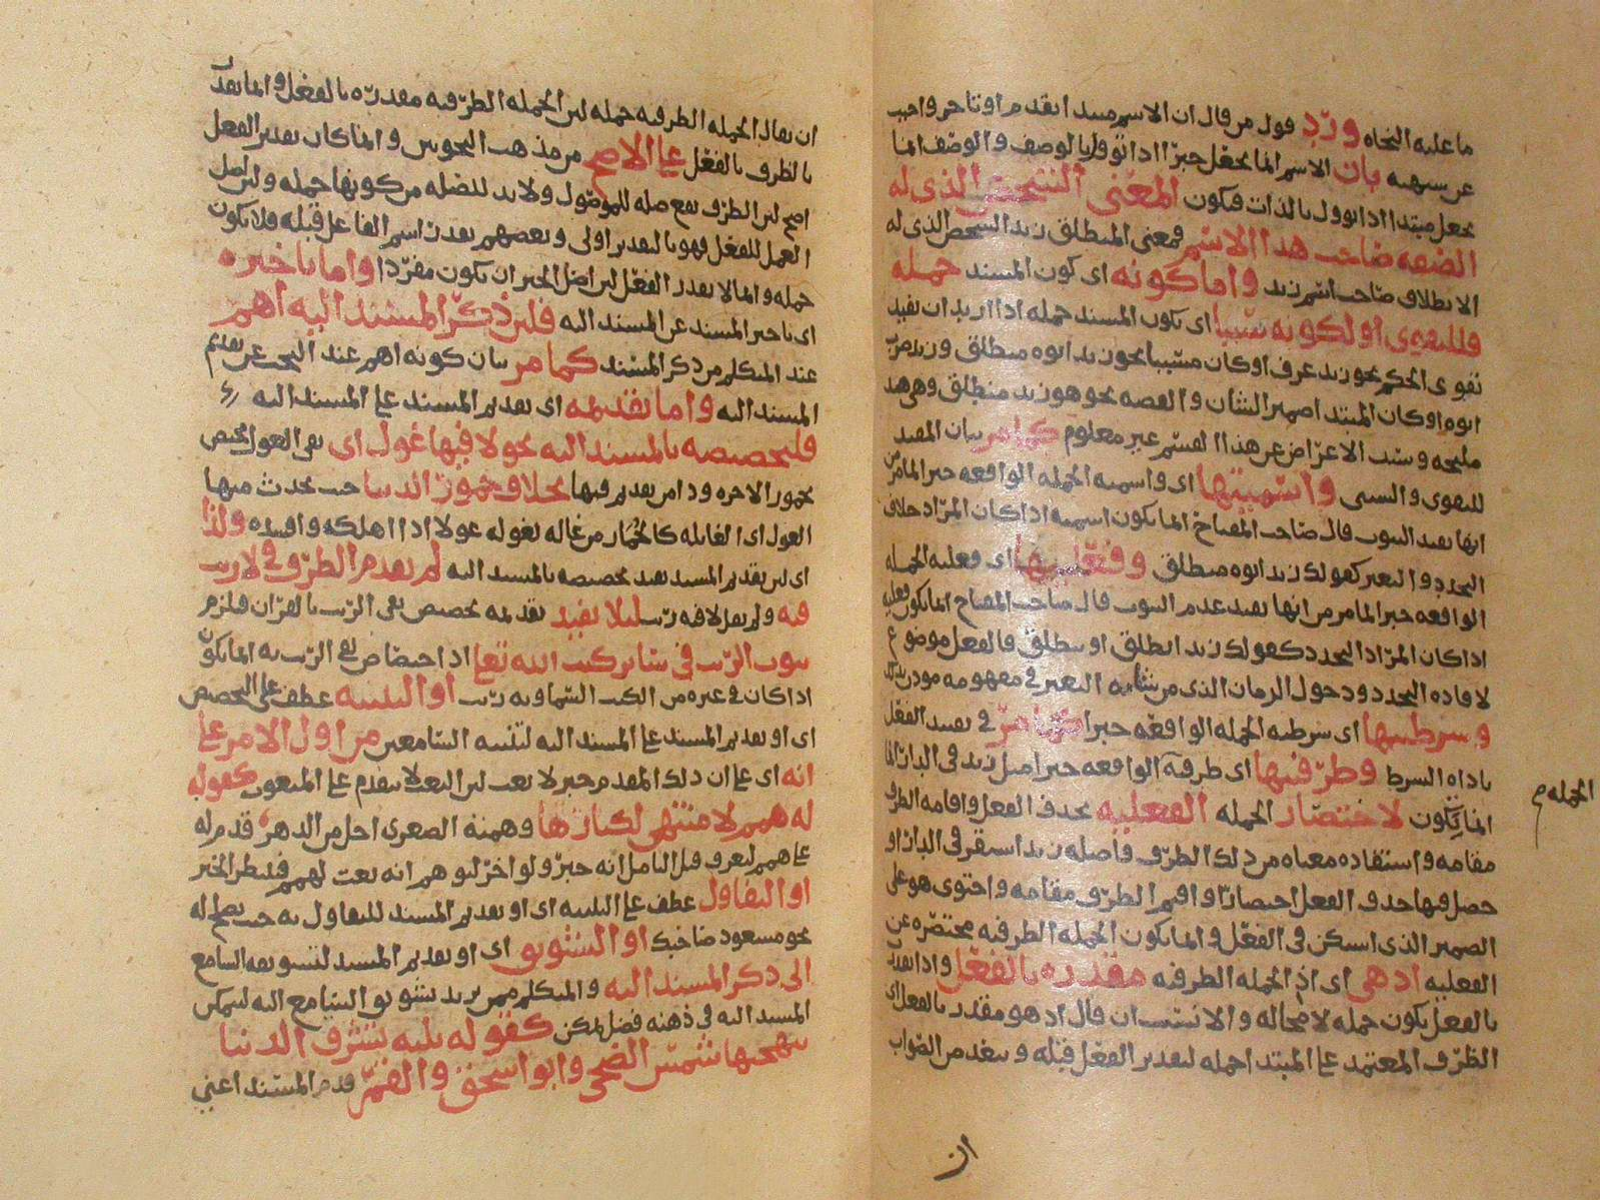 ما عليه النحاه ورد قول من قال ان الاسم مبتدا تقدم او تاخر واجيب
عن شبهته بان الاسم انما يجعل خبرا اذا اوول بالوصف والوصف انما
يجعل مبتدا اذا اوول بالذات فيكون المعنى الشخص الذى له
الصفه صاحب هذا الاسم فمعنى المنطلق زيد الشخص الذى له
الانطلاق صاحب اسم زيد واما كونه اى كون المسند جمله
فللتقوى او لكونه سببيا اى يكون المسند جمله اذا اريد ان يفيد
تقوى الحكم نحو زيد عرف او كان مسببا نحو زيد ابوه منطلق وزيد ضرب
ابوه او كان المبتدا ضمير الشان والقصه نحو هو زيد منطلق وهى هند
مليحه وسبب الاعراض عن هذا القسم غير معلوم كما مر بيان المفيد
للتقوى والسببى واسميتها اى واسميه الجمله الواقعه خبرا لما مر من
انها تفيد الثبوت قال صاحب المفتاح انما يكون اسميه اذا كان المراد خلاف
التجدد والتغير كقولك زيد ابوه منطلق وفعليتها اى فعليه الجمله
الواقعه خبرا لما مر من انها تفيد عدم الثبوت قال صاحب المفتاح انما يكون فعليه
اذا كان المراد التجدد كقولك زيد انطلق او ينطلق فالفعل موضوع
لافاده التجدد ودخول الزمان الذى من شانه التغير فى مفهومه موذن بذلك
وشرطيتها اى شرطيه الجمله الواقعه خبرا كما مر فى تقييد الفعل
باداه الشرط وظرفيتها اى ظرفيه الواقعه خبرا مثل زيد فى الدار انما
الجمله م
انما يكون لاختصار الجمله الفعليه بحذف الفعل واقامه الظرف
مقامه واستفاده معناه من ذلك الظرف فاصله زيد استقر فى الدار او
حصل فيها حذف الفعل اختصارا واقيم الظرف مقامه واحتوى هو على
الضمير الذى استكن فى الفعل وانما يكون الجمله الظرفيه مختصره عن
الفعليه اذ هى اى اذ الجمله الظرفيه مقدره بالفعل واذا تقدرت
بالفعل يكون جمله لا محاله والانتساب ان قال اذ هو مقدر بالفعل اى
الظرف المعتمد على المبتدا جمله لتقدير الفعل قبله وينفد من الصواب
ان
ان يقال الجمله الظرفيه جمله لان الجمله الظرفيه مقدره بالفعل وانما يقدر
بالظرف بالفعل على الاصح من مذهب النحويين وانما كان تقدير الفعل
اصح لان الظرف يقع صله للموصول ولا بد للصله من كونها جمله ولان اصل
العمل للفعل فهو بالتقدير اولى وبعضهم يقدر اسم الفاعل قبله فلا يكون
جمله وانما لا يقدر الفعل لان اصل الخبر ان يكون مفردا واما تاخيره
اى تاخير المسند عن المسند اليه فلان ذكر المسند اليه اهم
عند المتكلم من ذكر المسند كما مر بيان كونه اهم عند البحث عن تقديم
المسند اليه واما تقديمه اى تقديم المسند على المسند اليه
فلتخصيصه بالمسند اليه نحو لا فيها غول اى نفى الغول يختص
بخمور الاخره وذا من تقديم فيها بخلاف خمور الدنيا حيث يحدث منها
الغول اى الغايله كالخمار من غاله يغوله غولا اذا اهلكه وافسده ولذا
اى لان تقديم المسند يفيد تخصيصه بالمسند اليه لم يقدم الظرف فى لا ريب
فيه ولم يقل لا فيه ريب ليلا يفيد تقديمه تخصيص نفى الريب بالقران فيلزم
ثبوت الريب فى سائر كتب الله تعا اذ اختصاص نفى الريب به انما يكون
اذا كان فى غيره من الكتب السماويه ريب او التنبيه عطف على التخصيص
اى او تقديم المسند على المسند اليه لتنبيه السامعين من اول الامر على
انه اى على ان ذلك المقدم خبر لا نعت لان النعت لا يتقدم على المنعوت كقوله
له همم لا منتهى لكبارها وهمته الصغرى اجل من الدهر قدم له
على همم ليعرف قبل التامل انه خبر ولو اخر لتوهم انه نعت لهمم فينتظر الخبر
او التفاول عطف على التنبيه اى او تقديم المسند للتفاول به حيث يصلح له
نحو مسعود صاحبك او التشويق اى او تقديم المسند لتشويقه السامع
الى ذكر المسند اليه والمتكلم ممن يريد تشويق السامع اليه ليتمكن
المسند اليه فى ذهنه فضل تمكن كقوله ثلثه تشرق الدنيا
ببهجتها شمس الضحى وابو اسحق والقمر قدم المسند اعنى